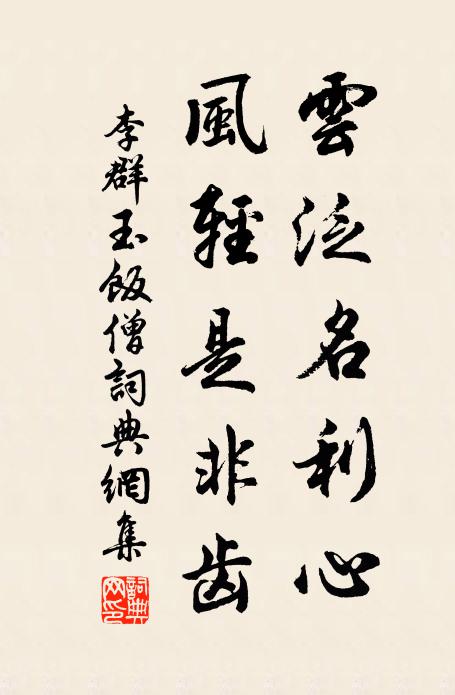 雲泛名利心
風輕是非齿
李群玉飯僧詞典網集
詞典
网印